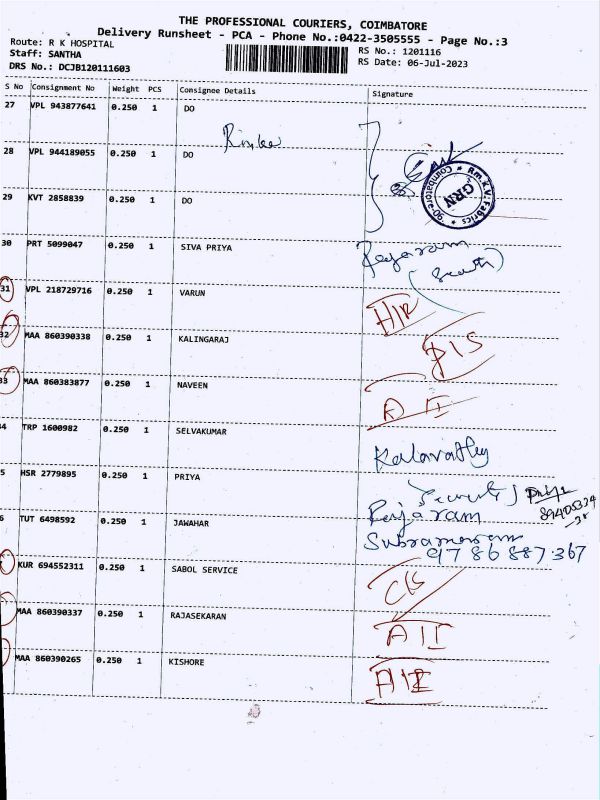 THE PROFESSIONAL COURIERS, COIMBATORE
Delivery Runsheet - PCA - Phone No.:0422-3505555 - Page No.:3
Route: R K HOSPITAL
Staff: SANTHA
DRS No.: DCJB120111603
RS No.: 1201116
RS Date: 06-Jul-2023
S No Consignment No Weight PCS Consignee Details Signature
27 VPL 943877641 0.250 1 DO
28 VPL 944189055 0.250 1 DO
Rm.K.V. Fabrics
GRN
Coimbatore
29 KVT 2858839 0.250 1 DO
30 PRT 5099047 0.250 1 SIVA PRIYA Rajaram
31 VPL 218729716 0.250 1 VARUN
32 MAA 860390338 0.250 1 KALINGARAJ
33 MAA 860383877 0.250 1 NAVEEN
4 TRP 1600982 0.250 1 SELVAKUMAR Kalavathy
5 HSR 2779895 0.250 1 PRIYA
6 TUT 6498592 0.250 1 JAWAHAR Rajaram
9786887367
KUR 694552311 0.250 1 SABOL SERVICE
MAA 860390337 0.250 1 RAJASEKARAN
MAA 860390265 0.250 1 KISHORE